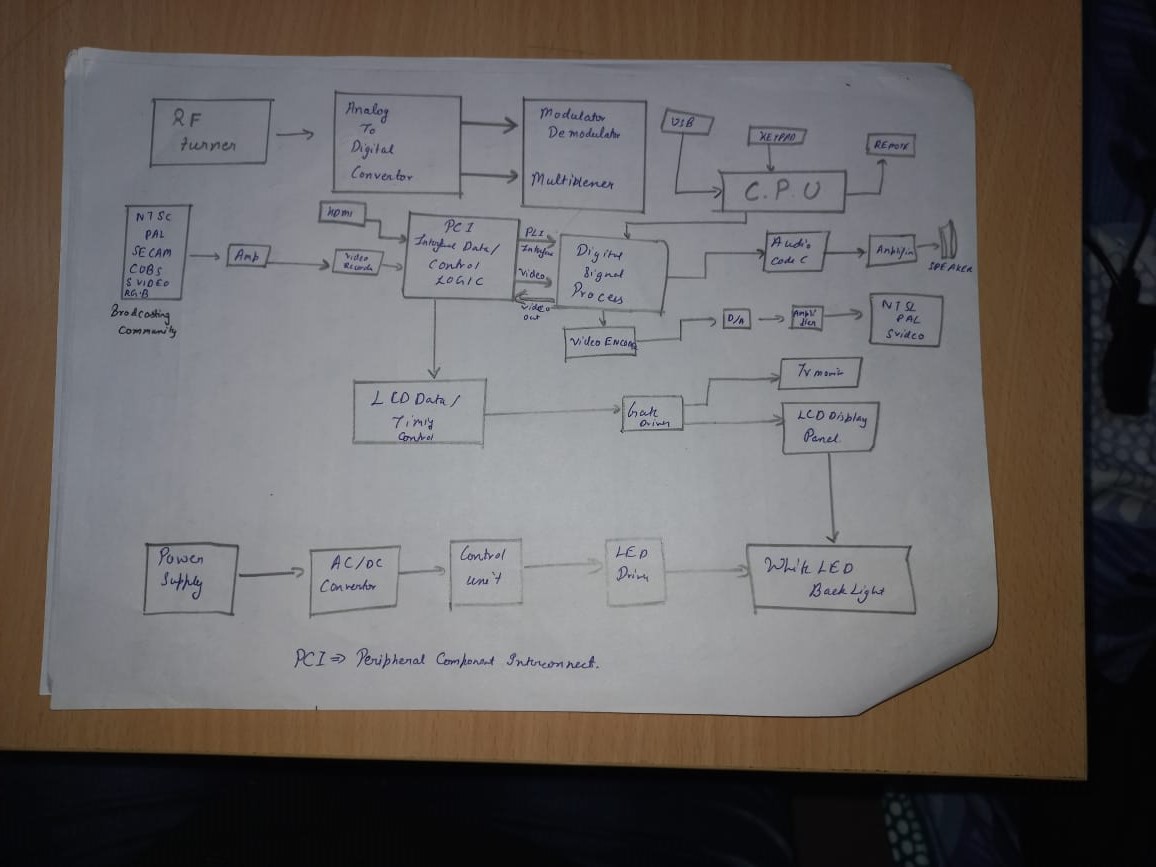 RF
Turner
Analog
To
Digital
Convertor
Modulator
Demodulator
Multiplener
USB
KEYPAD
REMOTE
C.P.U
NTSC
PAL
SECAM
COBS
S VIDEO
RGB
Brodcasting
Community
Amp
HDMI
Video
PCI
Interface Data/
Control
LOGIC
PLI
Interface
Video
Video
out
Digital
Signal
Process
Audio
Code C
SPEAKER
Video ENCODER
D/A
NTSC
PAL
Svideo
LCD Data/
Timing
Control
Gate
Driver
TV
LCD Display
Panel
Power
Supply
AC/DC
Convertor
Control
unit
LED
Driver
White LED
Back Light
PCI ⇒ Peripheral Component Interconnect.